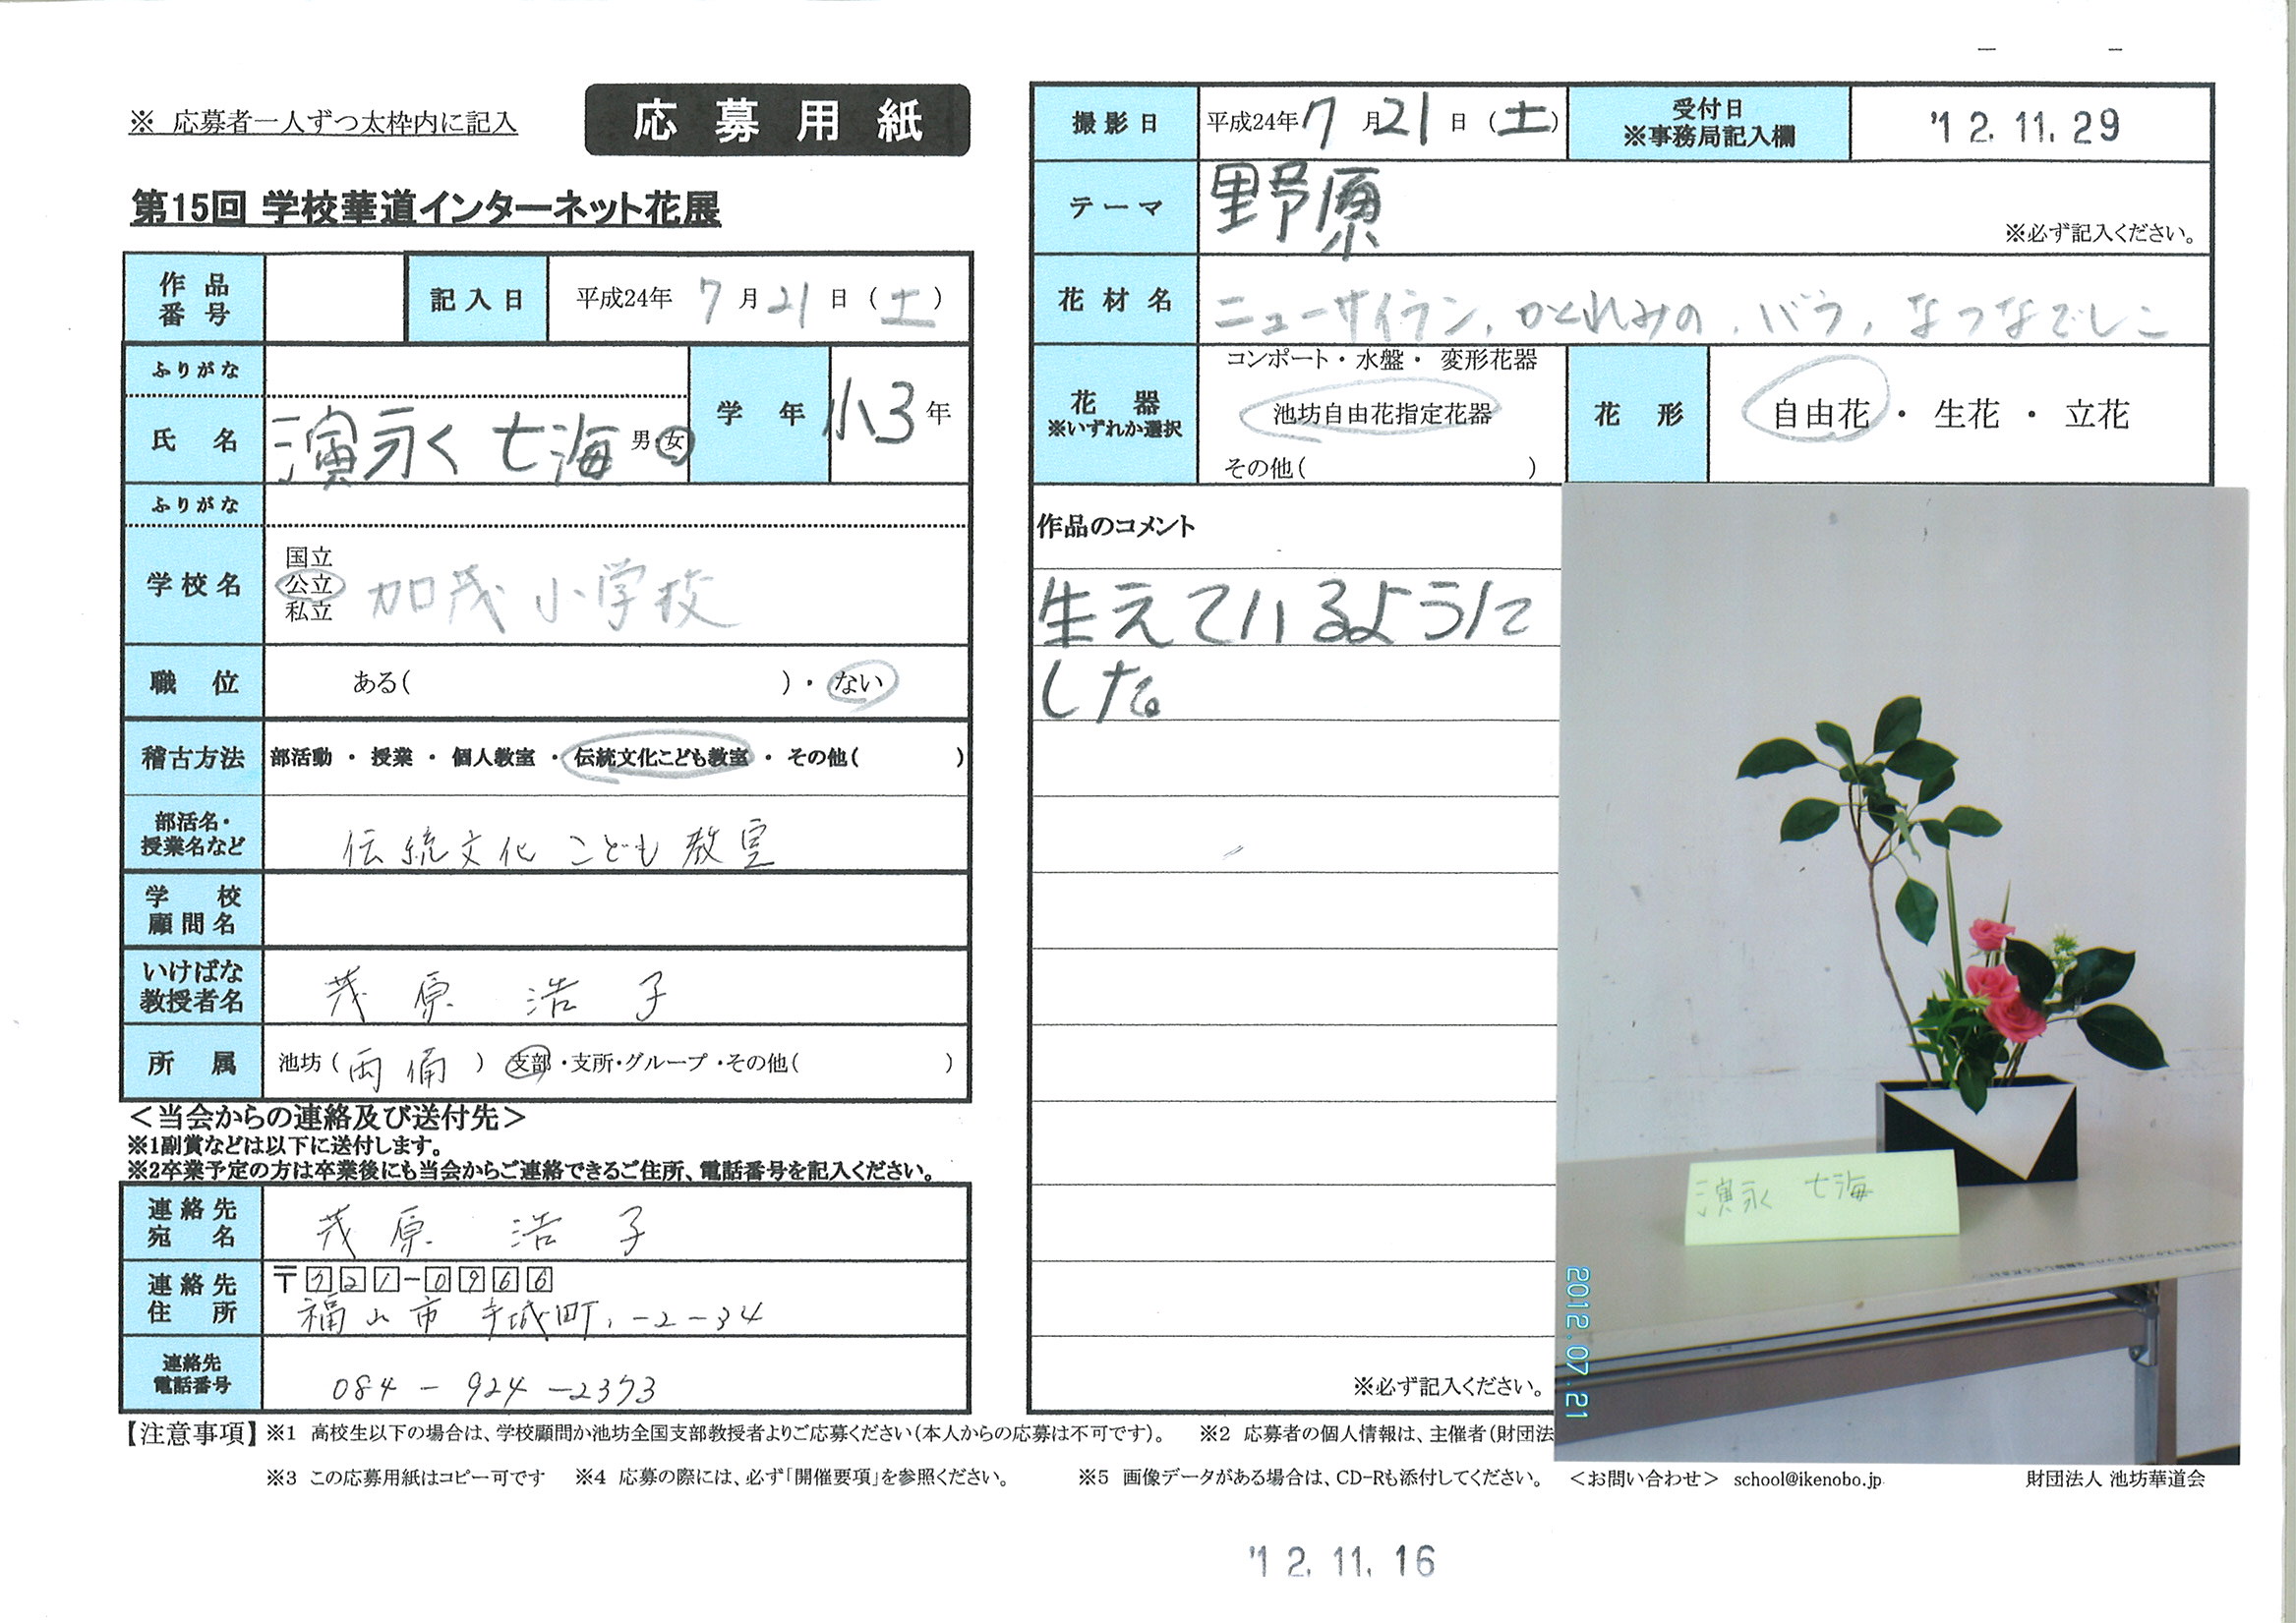 ※ 応募者一人ずつ太枠内に記入
応募用紙
第15回 学校華道インターネット花展
作品番号
記入日 平成24年 7月21日(土)
ふりがな
氏名 濵永く 七海 男・女
学年 小3年
ふりがな
学校名 国立 公立 私立 加茂小学校
職位 ある( )・ない
稽古方法 部活動 ・ 授業 ・ 個人教室 ・ 伝統文化こども教室 ・ その他( )
部活名・授業名など 伝統文化 こども 教室
学校顧問名
いけばな教授者名 茂原 浩子
所属 池坊(両備) 支部・支所・グループ・その他( )
<当会からの連絡及び送付先>
※1副賞などは以下に送付します。
※2卒業予定の方は卒業後にも当会からご連絡できるご住所、電話番号を記入ください。
連絡先宛名 茂原 浩子
連絡先住所 〒721-0966
福山市 手城町1-2-34
連絡先電話番号 084-924-2373
撮影日 平成24年7月21日(土)
受付日 ※事務局記入欄 '12.11.29
テーマ 野原
※必ず記入ください。
花材名 ニューサイラン, かくれみの, バラ, なつなでしこ
花器 ※いずれか選択
コンポート・水盤・ 変形花器
池坊自由花指定花器
その他( )
花形 自由花 ・ 生花 ・ 立花
作品のコメント
生えているように
した。
※必ず記入ください。
濵永く 七海
2012.07.21
【注意事項】 ※1 高校生以下の場合は、学校顧問か池坊全国支部教授者よりご応募ください(本人からの応募は不可です)。 ※2 応募者の個人情報は、主催者(財団法
※3 この応募用紙はコピー可です ※4 応募の際には、必ず「開催要項」を参照ください。 ※5 画像データがある場合は、CD-Rも添付してください。 <お問い合わせ> school@ikenobo.jp 財団法人 池坊華道会
'12.11.16